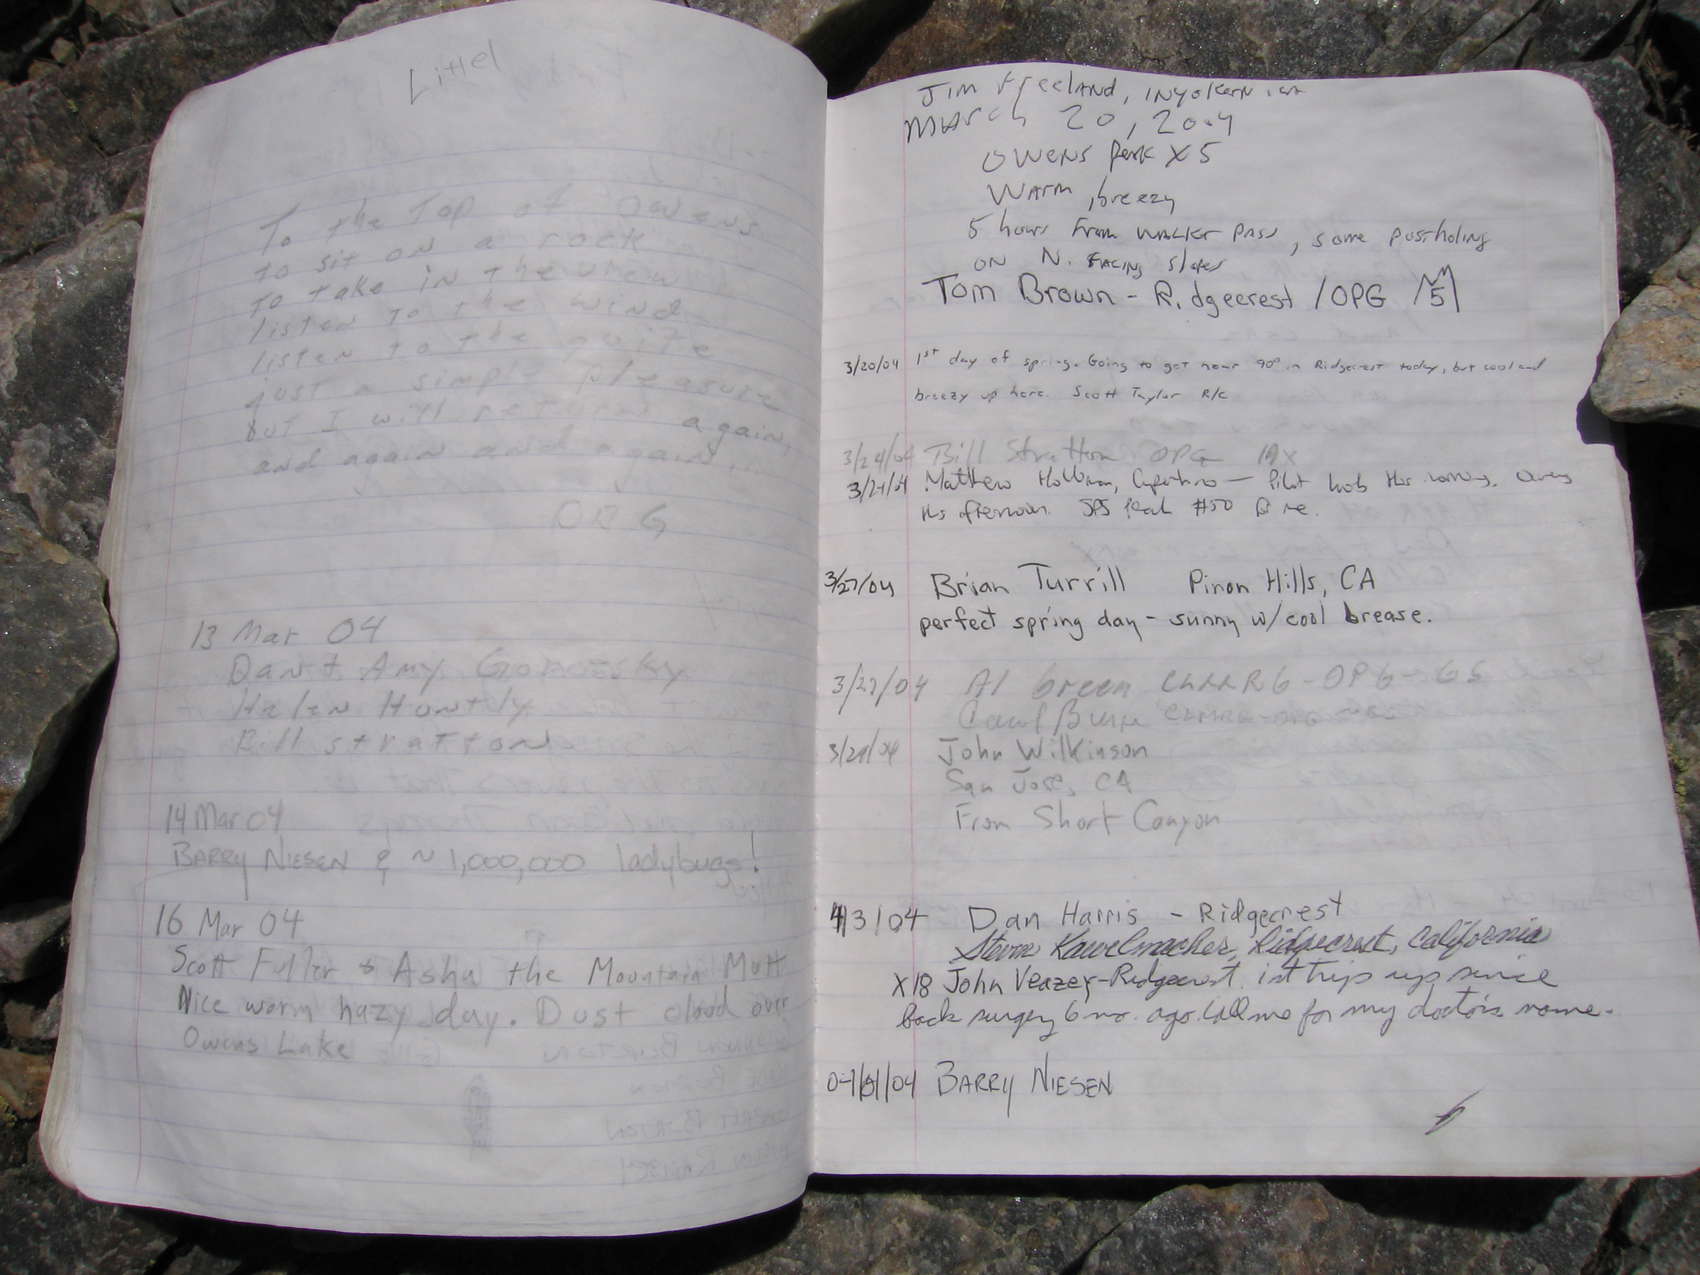 Littel
To the Top of Owens
to sit on a rock
to take in the view
listen to the wind
listen to the quite
just a simple pleasure
but I will return again,
and again and again...
OPG
13 Mar 04
Dan & Amy
Halen Huntly
Bill stratton
14 Mar 04
BARRY NIESEN & ~1,000,000 ladybugs!
16 Mar 04
Scott Fuller & Asha the Mountain Mutt
Nice warm hazy day. Dust cloud over
Owens Lake
Jim Freeland, INYOKERN, CA
MARCH 20, 2004
OWENS Peak X5
WARM, breezy
5 hours from WALKER PASS, some postholing
ON N. FACING slopes
Tom Brown - Ridgecrest /OPG 5
3/20/04 1st day of spring. Going to get near 90° in Ridgecrest today, but cool and
breezy up here. Scott Taylor R/C
3/24/04 Bill Stratton OPG
3/24/04 Matthew Cupertino - Pilot Knob this morning. Owens
this afternoon. SPS Peak #50 for me.
3/27/04 Brian Turrill Pinon Hills, CA
perfect spring day - sunny w/ cool brease.
3/27/04 Al Green CLMRG-OPG-GS
Carol Burge CLMRG-OPG
John Wilkinson
San Jose, CA
From Short Canyon
4/3/04 Dan Harris - Ridgecrest
Ridgecrest, California
X18 John Veazey-Ridgecrest. 1st trip up since
back surgery 6 mo. ago. Call me for my doctor's name.
BARRY NIESEN